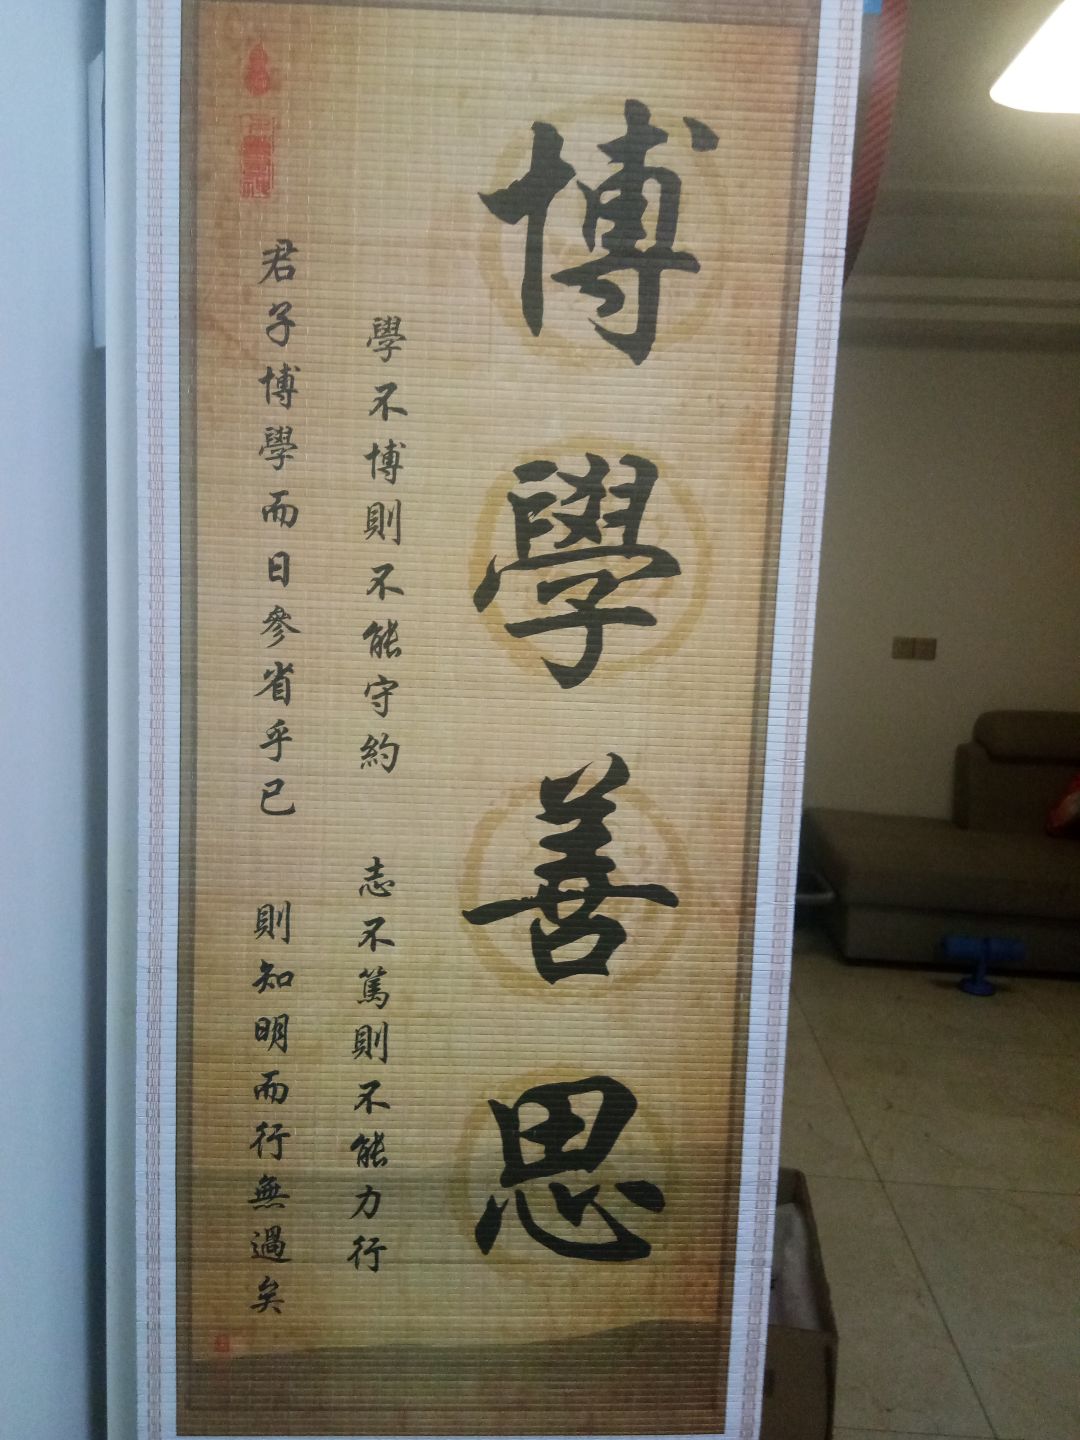 博學善思
學不博則不能守約 志不篤則不能力行
君子博學而日參省乎已 則知明而行無過矣